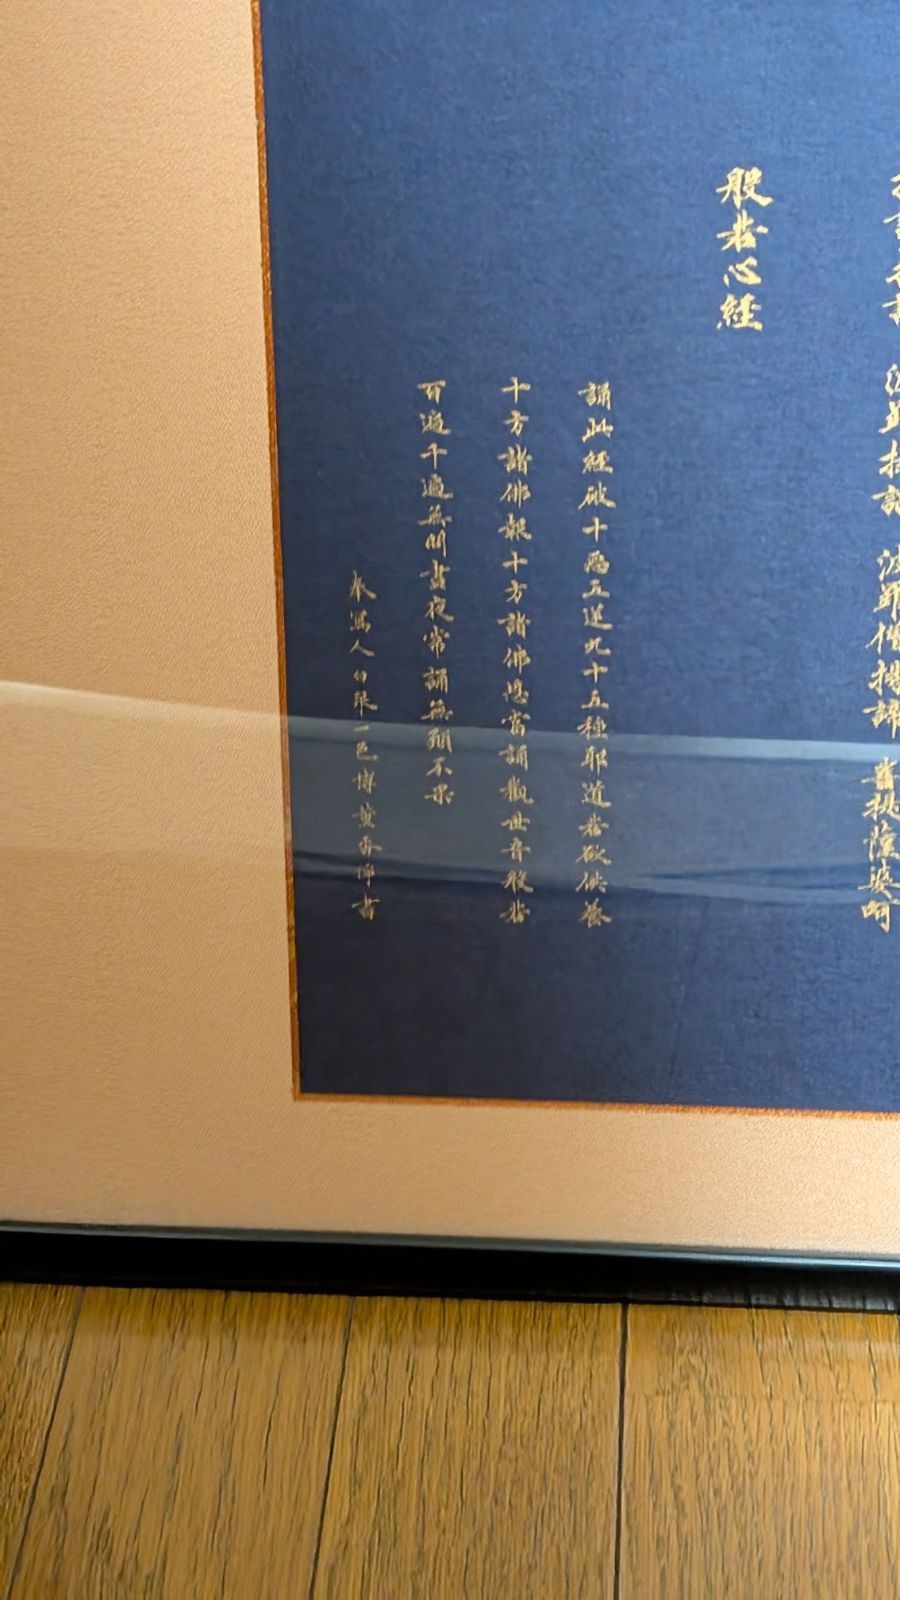 波羅揭諦 波羅僧揭諦 菩提薩婆呵
般若心経
誦此経破十惡五逆九十五種耶道若欲供養
十方諸佛報十方諸佛恩當誦觀世音般若
百遍千遍無間晝夜常誦無願不果
奉寫人 一色 書